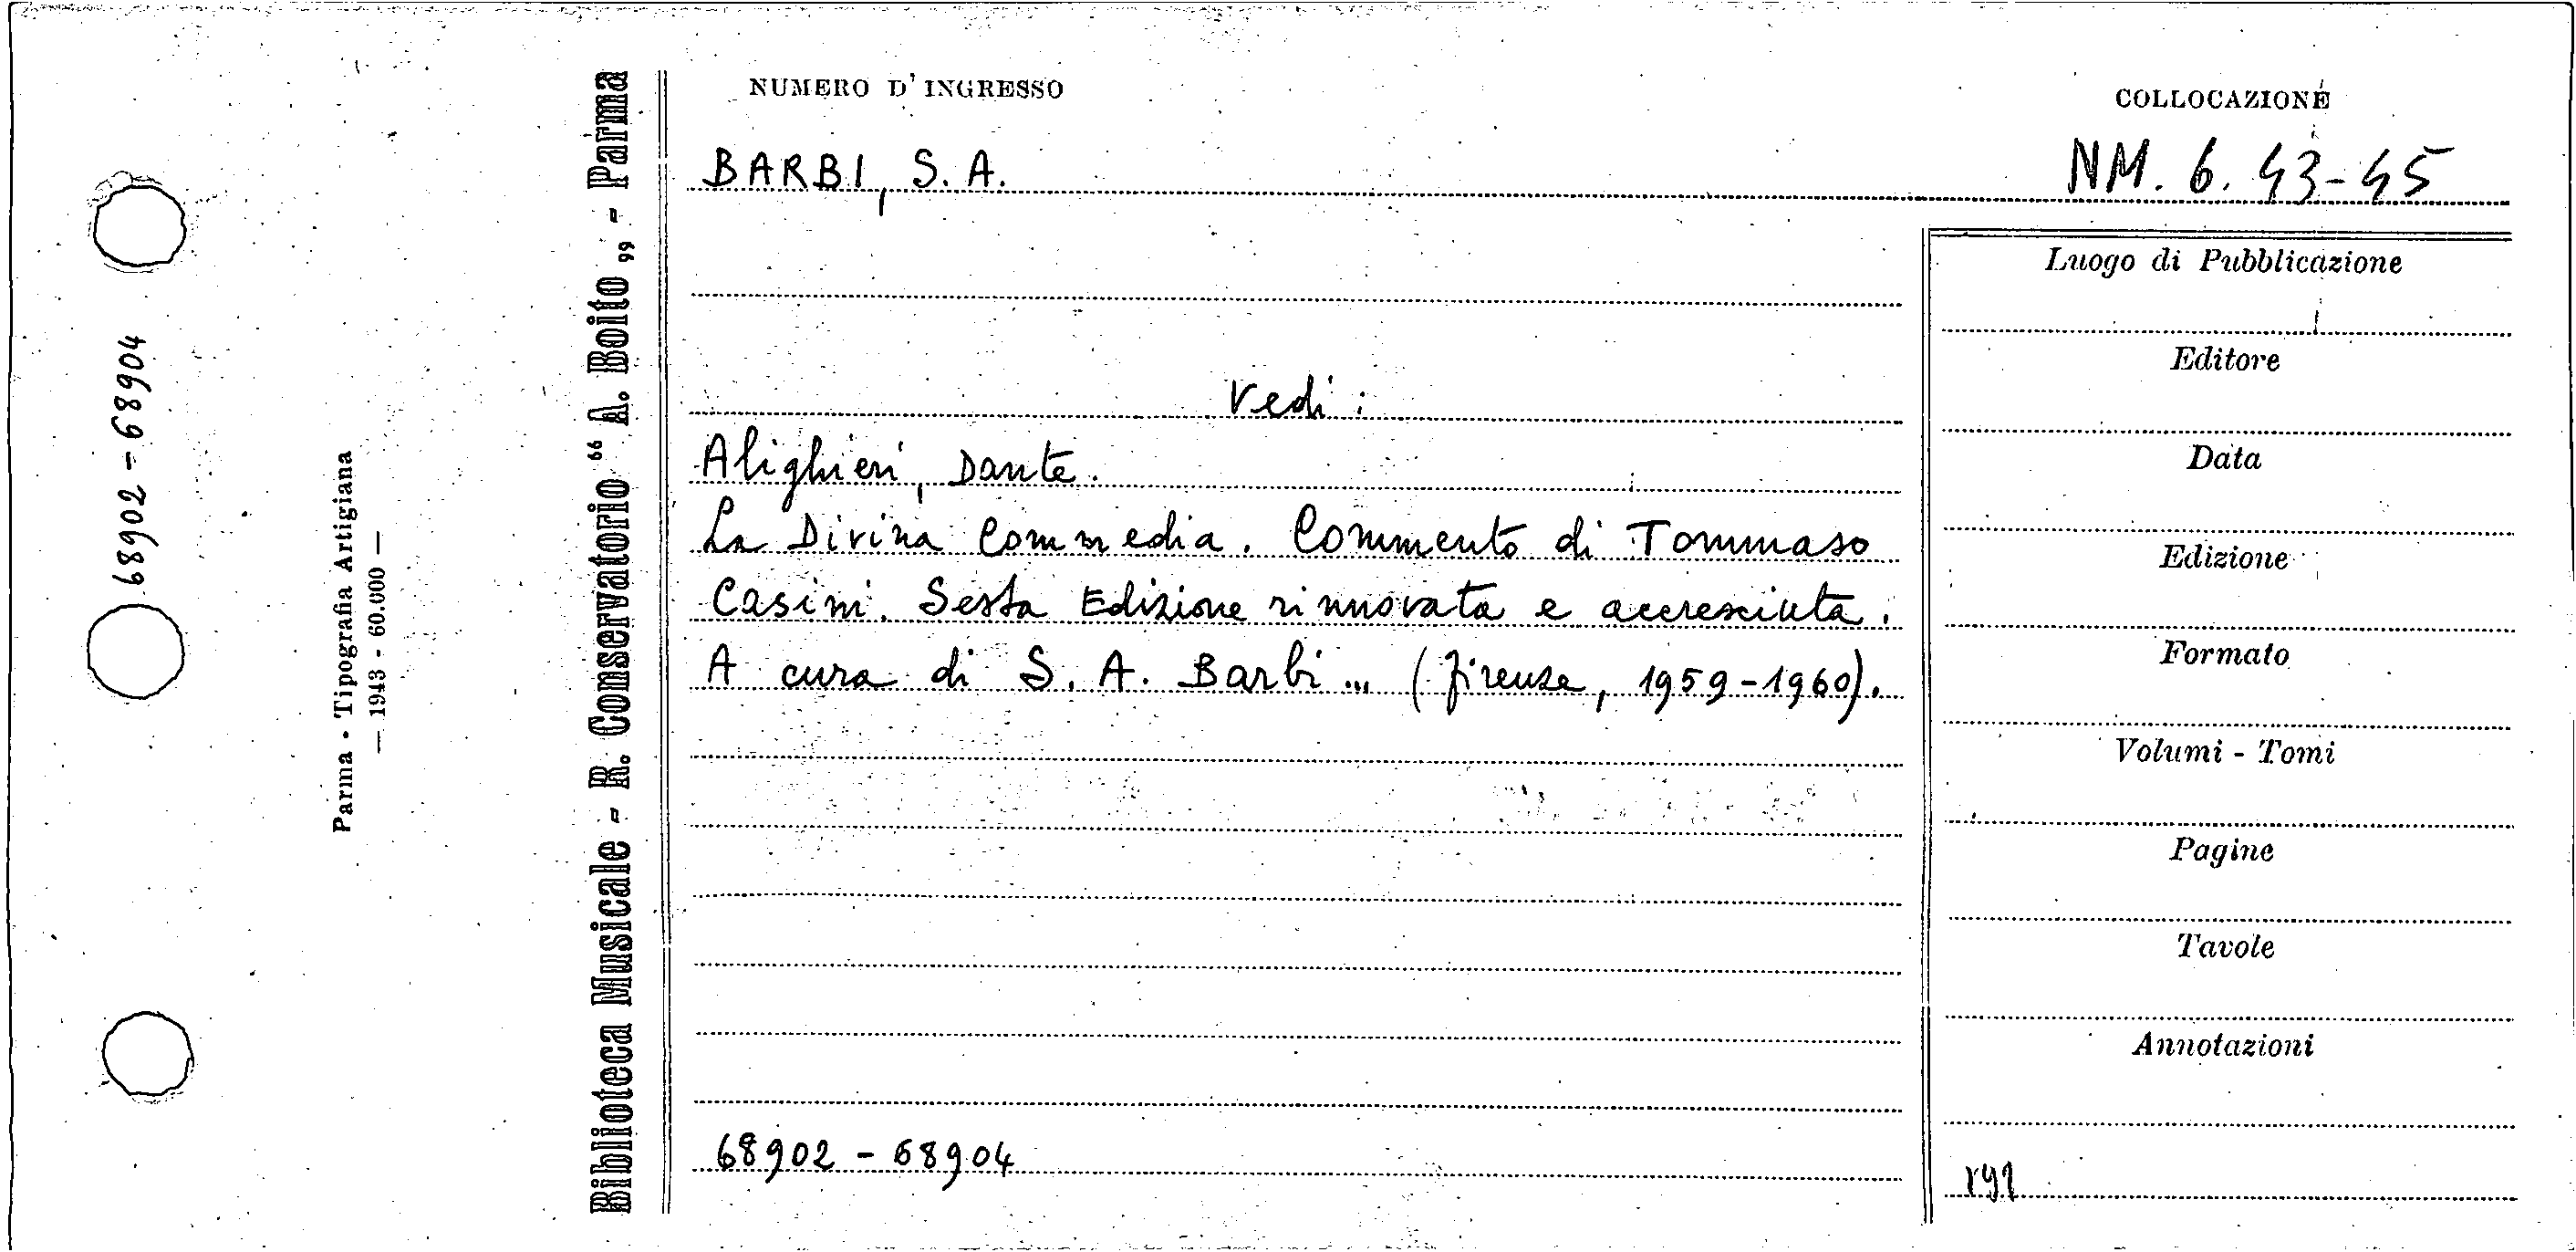 NUMERO D'INGRESSO
COLLOCAZIONE
BARBI, S. A.
NM. 6. 43-45
Vedi:
Alighieri, Dante.
La Divina Commedia. Commento di Tommaso
Casini. Sesta Edizione rinnovata e accresciuta.
A cura di S. A. Barbi ... (Firenze, 1959-1960).
68902 - 68904
Luogo di Pubblicazione
Editore
Data
Edizione
Formato
Volumi - Tomi
Pagine
Tavole
Annotazioni
Biblioteca Musicale - R. Conservatorio “ A. Boito „ - Parma
Parma - Tipografia Artigiana
— 1943 - 60.000 —
68902 - 68904